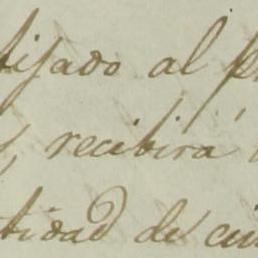 tijado al
recibirá
tidad de